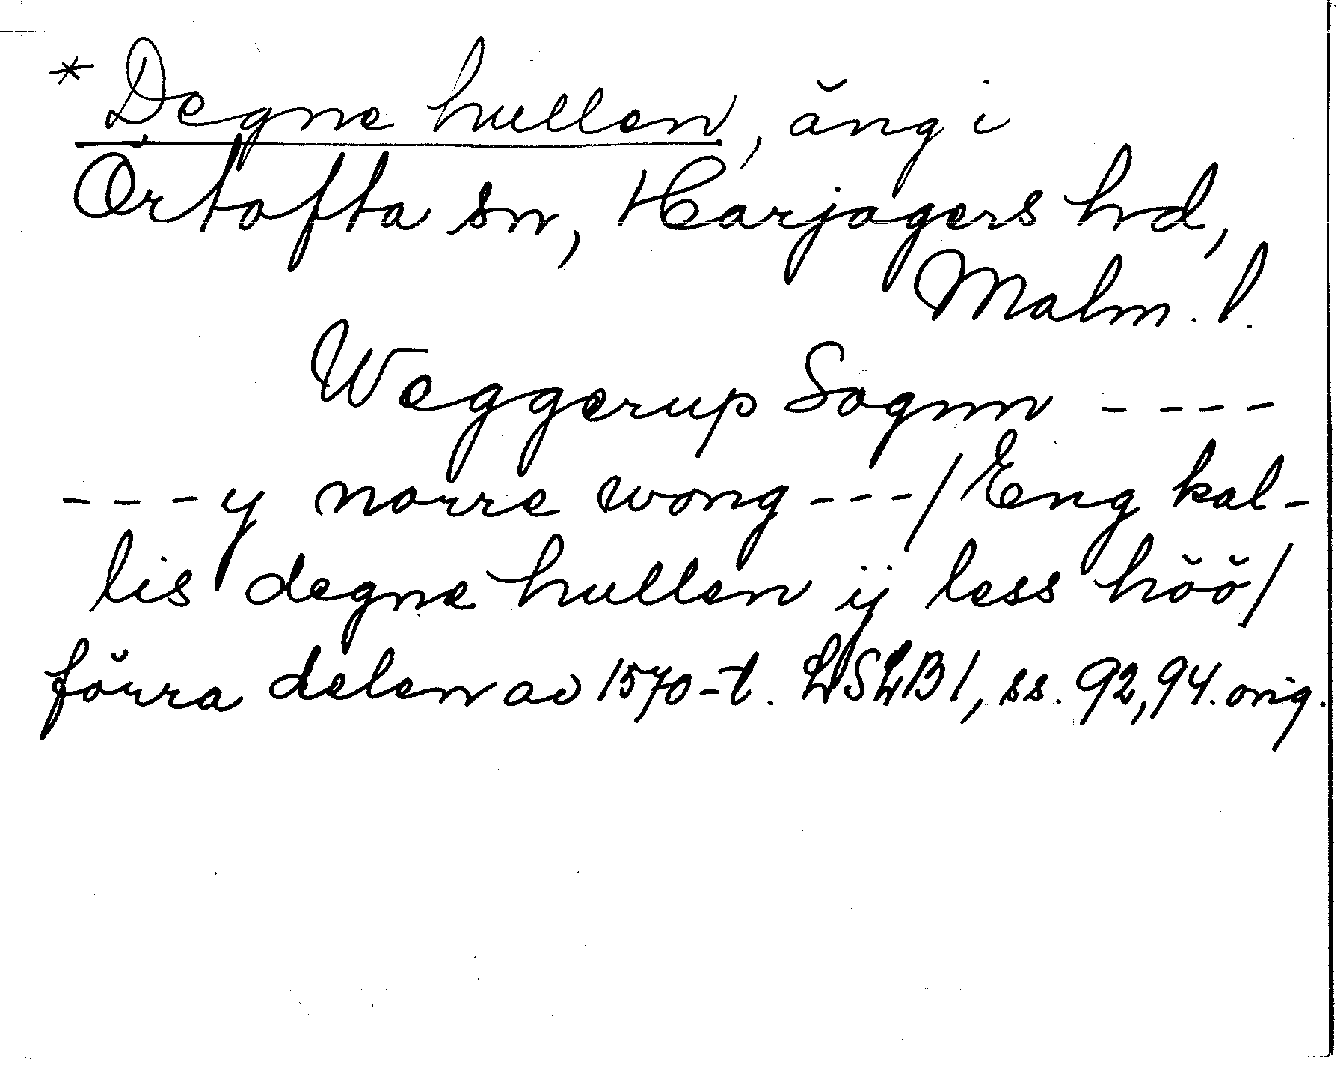 * Degne hullen, äng i
Örtofta sn, Harjagers hd,
Malm. l.
Weggerup Sognn ----
--- y norre wong ---/ Eng kal-
lis degne hullen ij less höö/
förra delen av 1570-t. LSLB 1, ss. 92, 94. orig.